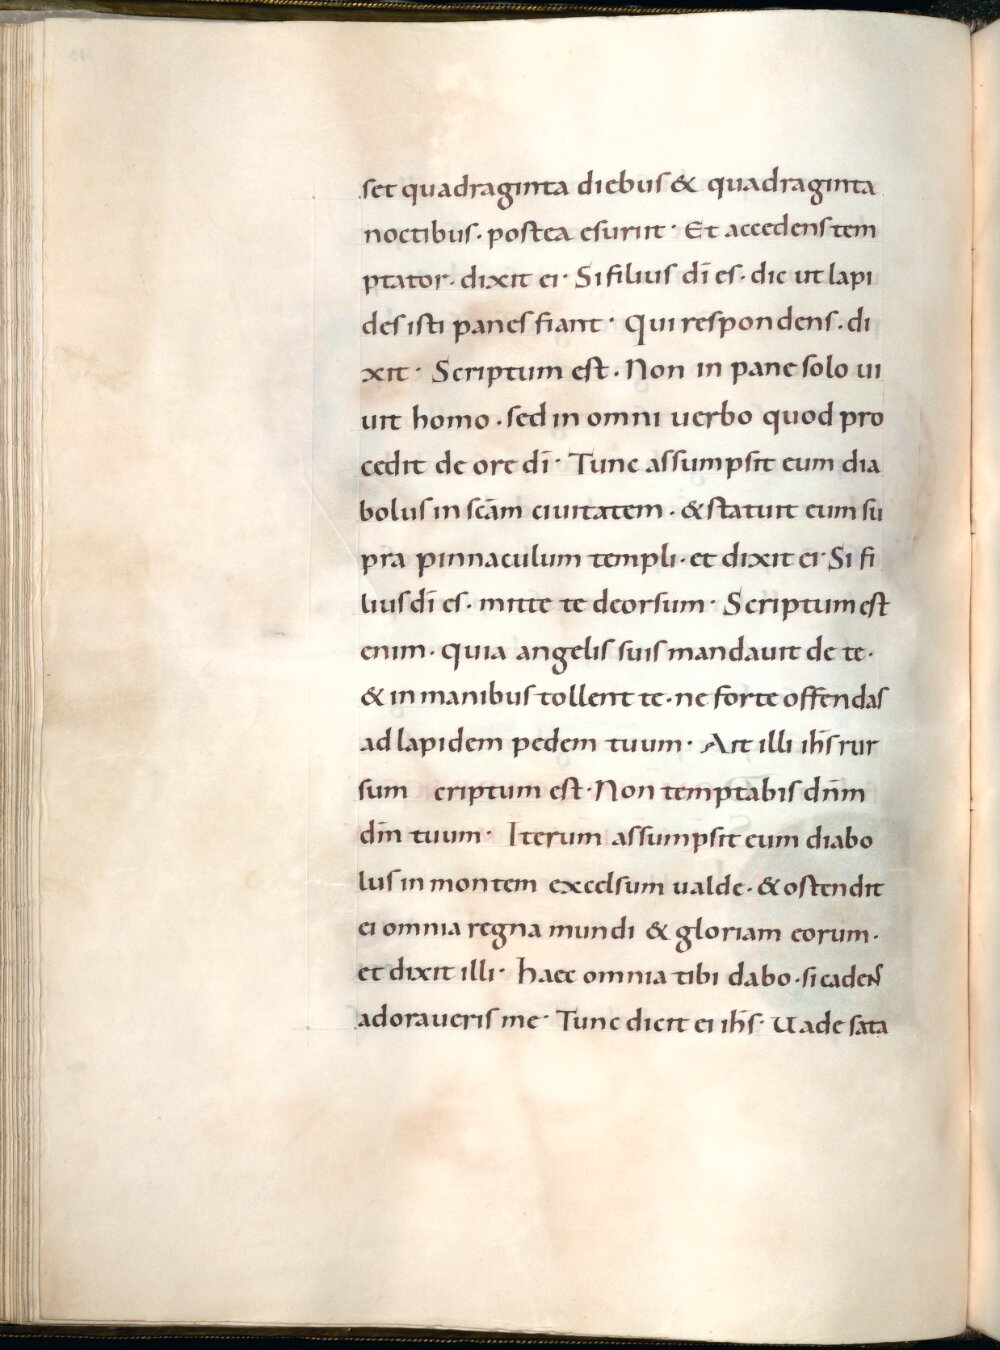 set quadraginta diebus & quadraginta
noctibus· postea esuriit· Et accedens tem
ptator· dixit ei· Si filius dī es· dic ut lapi
des isti panes fiant· Qui respondens· di
xit· Scriptum est· Non in pane solo ui
uit homo· sed in omni uerbo quod pro
cedit de ore dī· Tunc assumpsit eum dia
bolus in scām ciuitatem· & statuit eum su
pra pinnaculum templi· et dixit ei· Si fi
lius dī es· mitte te deorsum· Scriptum est
enim· quia angelis suis mandauit de te·
& in manibus tollent te· ne forte offendas
ad lapidem pedem tuum· Ait illi ihs̄ rur
sum criptum est· Non temptabis dn̄m
dm̄ tuum· Iterum assumpsit eum diabo
lus in montem excelsum ualde· & ostendit
ei omnia regna mundi & gloriam eorum·
et dixit illi· haec omnia tibi dabo· si cadens
adoraueris me· Tunc dicit ei ihs̄· Uade sata